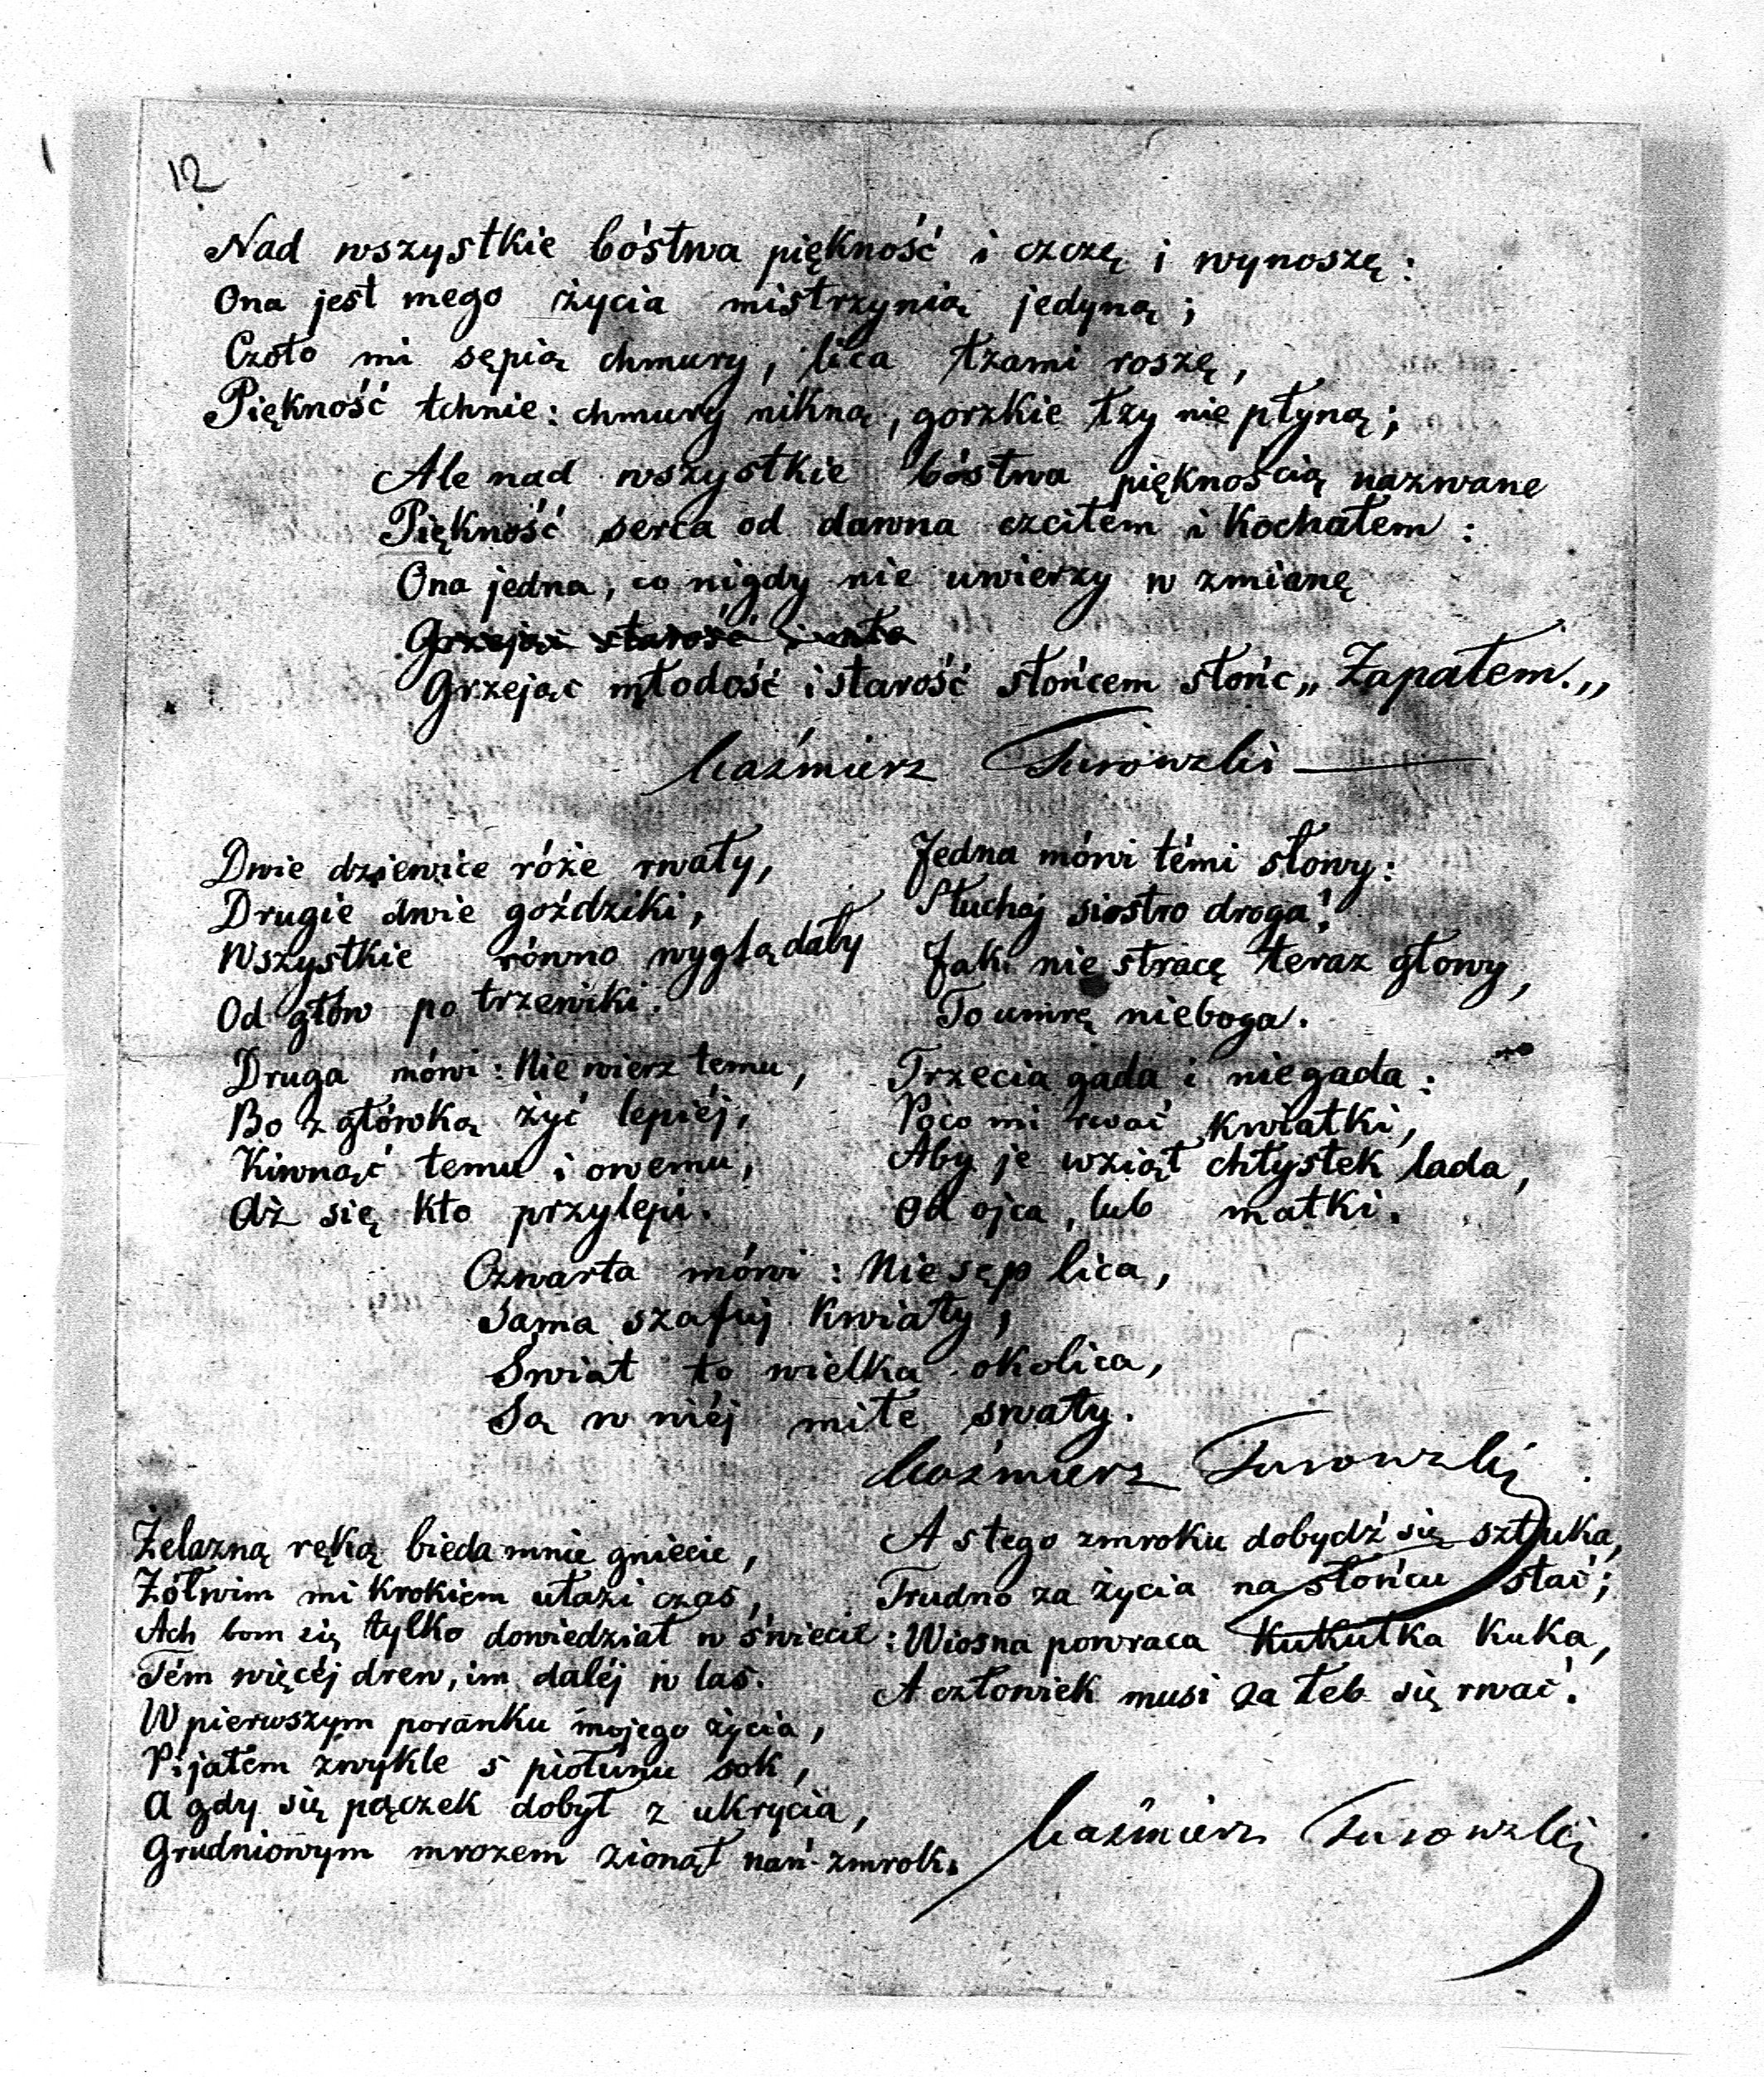 12
Nad wszystkie bóstwa piękność i czczę i wynoszę:
Ona jest mego życia mistrzynią jedyną;
Czoło mi sępią chmury, lica łzami roszę,
Piękność tchnie: chmury nikną, gorzkie łzy nie płyną;
Ale nad wszystkie bóstwa pięknością nazwane
Piękność serca od dawna czciłem i Kochałem:
Ona jedna, co nigdy nie uwierzy w zmianę
Grzejąc starość i
Grzejąc młodość i starość słońcem słońc „Zapałem.„
Kaźmierz Turowski
Dwie dziewice róże rwały,
Drugie dwie goździki,
Wszystkie równo wyglądały
Od głów po trzewiki.
Jedna mówi témi słowy:
Słuchaj siostro droga!
Jak nie stracę teraz głowy,
To umrę nieboga.
Druga mówi: Nie wierz temu,
Bo z główką żyć lepiéj,
Kiwnąć temu i owemu,
Aż się kto przylepi.
Trzecia gada i niegada:
Poco mi rwać kwiatki,
Aby je wziął chłystek lada,
Od ojca, lub matki.
Czwarta mówi: Niesęp lica,
Sama szafuj kwiaty,
Swiat to wielka okolica,
Są w niéj miłe swaty.
Kaźmierz Turowski
Żelazną ręką bieda mnie gniecie,
Żółwim mi krokiem ułazi czas,
Ach bom się tylko dowiedział w świecie:
Tém więcéj drew, im daléj w las.
W pierwszym poranku mojego życia,
Pijałem zwykle s piołunu sok,
A gdy się pączek dobył z ukrycia,
Grudniowym mrozem zionął nań zmrok.
A s tego zmroku dobydź się sztuka,
Trudno za życia na słońcu stać;
Wiosna powraca Kukułka Kuka,
A człowiek musi za łeb się rwać!
Kaźmierz Turowski